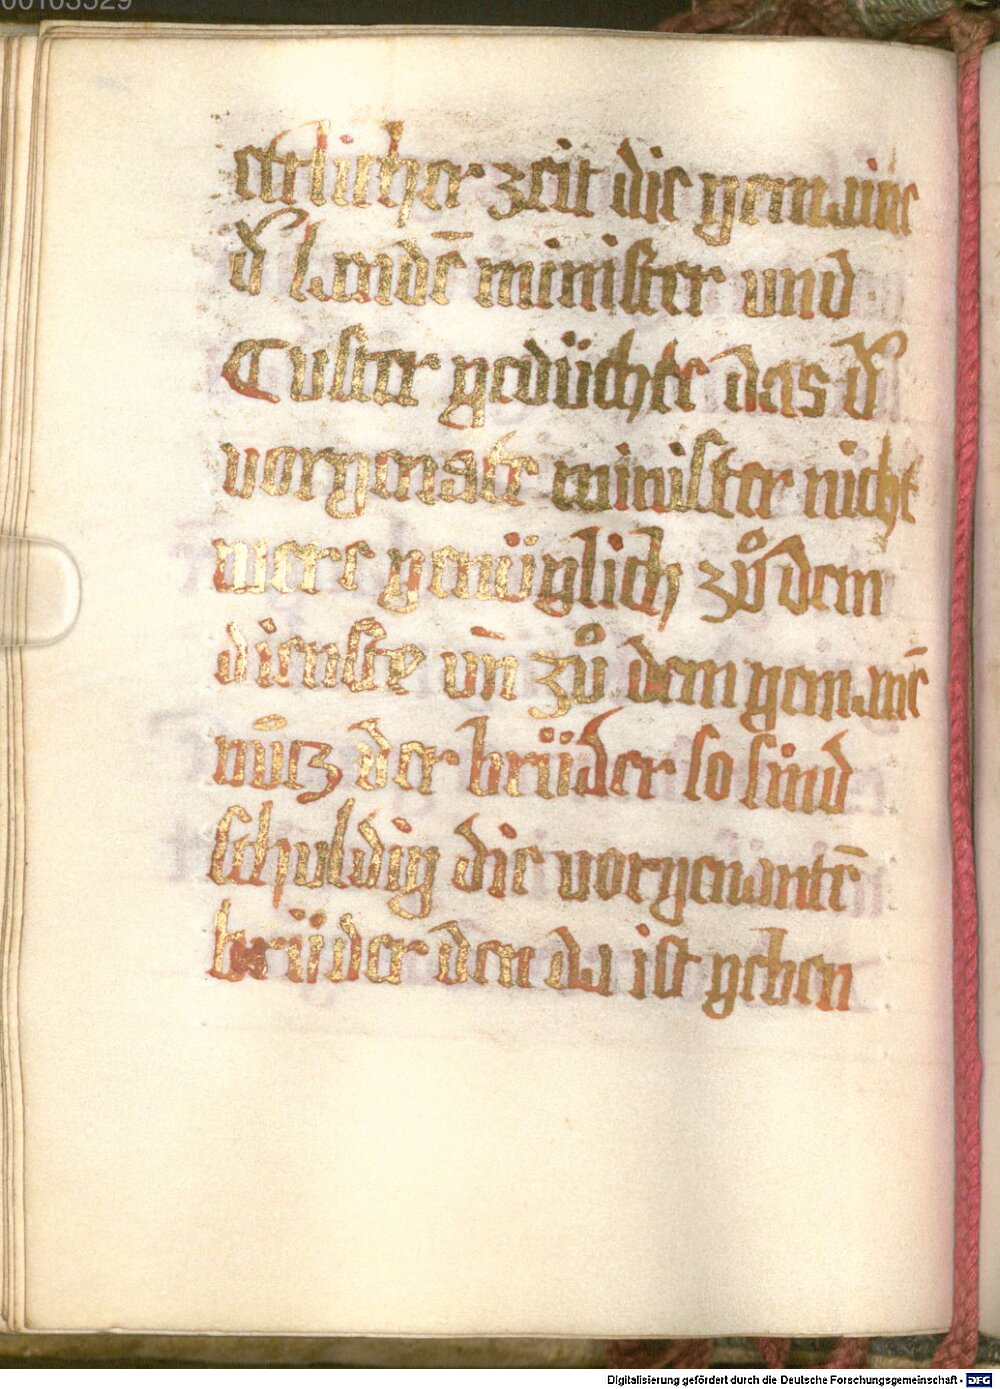 00103529
etlicher zeit die gemaine
d̕ landē minister und
Custer gedüchte das d̕
vorgenate minister nicht
were genüglich zů dem
dienste un̄ zů dem gemainē
nücz der brüder so sind
schuldig die vorgenantē
brüder den da ist geben
Digitalisierung gefördert durch die Deutsche Forschungsgemeinschaft - DFG